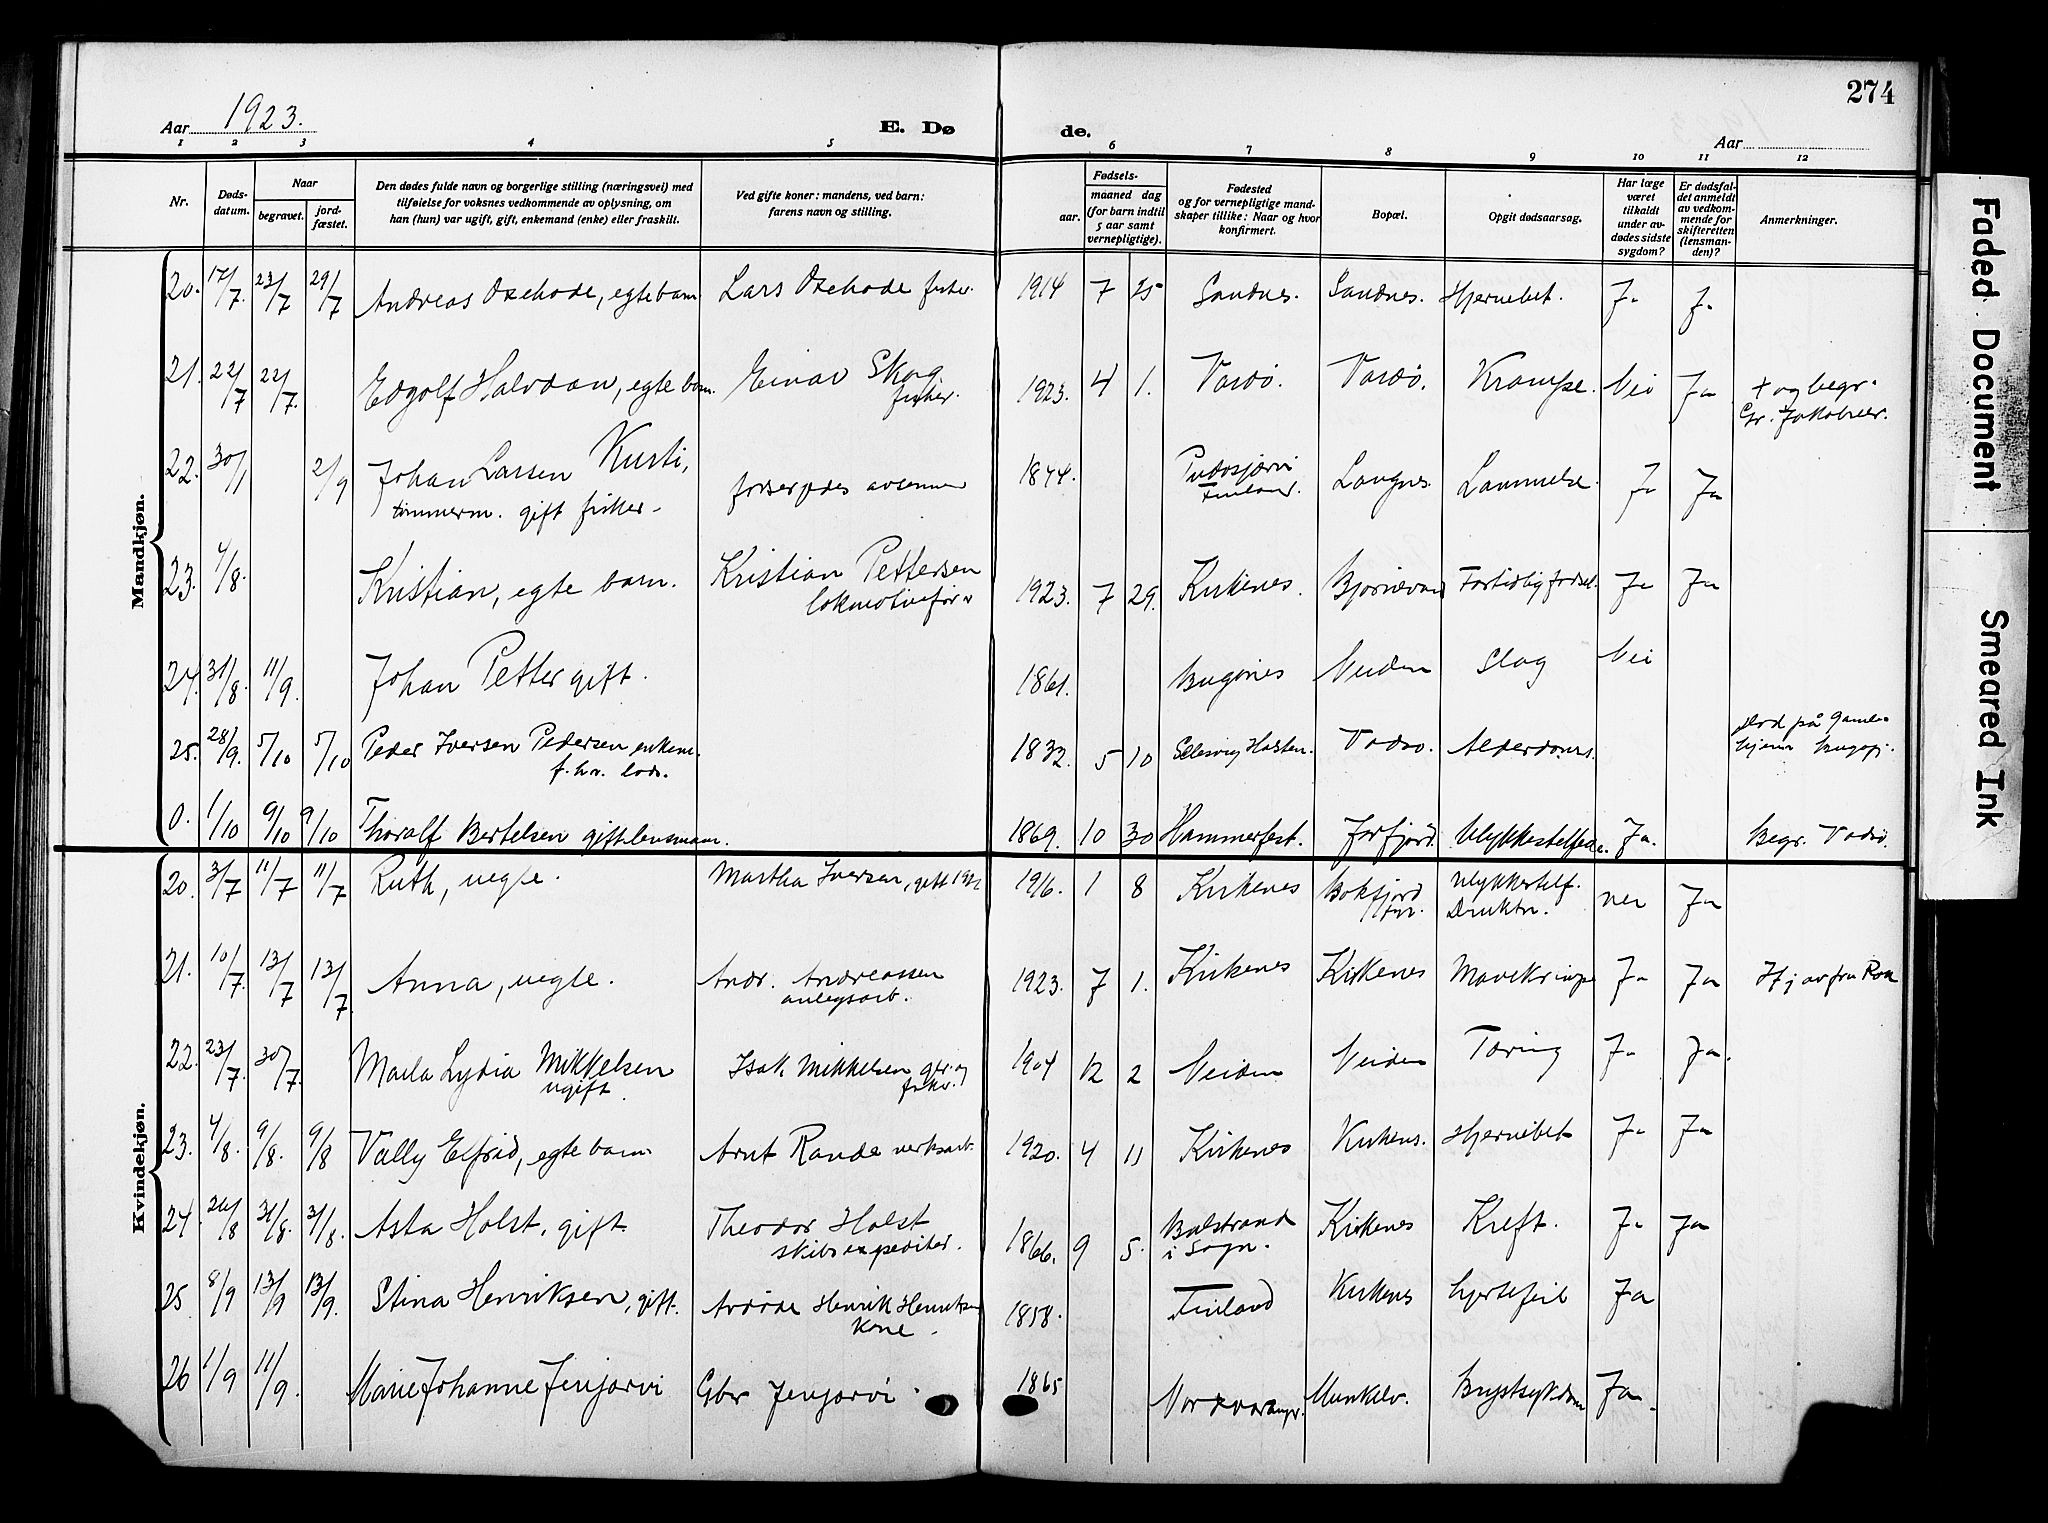 274
Aar 1923.
E. Dø
de.
Aar
1 2 3 4 5 6 7 8 9 10 11 12
Nr.
Døds-
datum.
Naar
begravet.
jord-
fæstet.
Den dødes fulde navn og borgerlige stilling (næringsvei) med
tilføielse for voksnes vedkommende av oplysning, om
han (hun) var ugift, gift, enkemand (enke) eller fraskilt.
Ved gifte koner: mandens, ved barn:
farens navn og stilling.
Fødsels-
aar.
maaned dag
(for barn indtil
5 aar samt
vernepligtige).
Fødested
og for vernepligtige mand-
skaper tillike: Naar og hvor
konfirmert.
Bopæl.
Opgit dødsaarsag.
Har læge
været
tilkaldt
under av-
dødes sidste
sygdom?
Er dødsfal-
det anmeldt
av vedkom-
mende for
skifteretten
(lensman-
den)?
Anmerkninger.
Mandkjøn.
20. 17/7. 23/7 29/7 Andreas Oxehode, egte barn Lars Oxehode fisker. 1914 7 25 Sandnes. Sandnes. Hjernebet. Ja Ja
21. 22/7 22/7. Edgolf Halvdan, egte barn. Einar Skog 1923. 4 1. Vardø. Vardø. Krampe. Nei Ja + og begr.
fisker.
Gr. Jakobselv.
22. 30/1 2/9 Johan Larsen Kusti, 1844. Pudosjærvi Langnes. Lammelse. Ja Ja
tømmerm. gift fisker Finland.
23. 4/8. Kristian, egte barn. Kristian Pettersen 1923. 7 29. Kirkenes. Bjørnevand Fortidlig fødsel. Ja Ja
lokomotivfører
24. 31/8. 11/9. Johan Petter gift. 1861. Bugønes Neiden Slag Nei
25. 28/9. 5/10 5/10 Peder Iversen Pedersen enkem. 1832. 5 10 Slesvig Holsten. Vadsø. Alderdoms.
f. hv. lods.
død på Gamle-
hjem
0. 1/10 9/10 9/10 Thoralf Bertelsen gift lensmann. 1869. 10 30 Hammerfest. Jarfjord. Ulykkestilfelde. Ja. Begr. Vadsø.
Kvindekjøn.
20. 3/7 11/7 11/7 Ruth, uegte. Martha Iversen, gift 1923 1916. 1 8 Kirkenes Bokfjord Ulykkestilf. nei Ja
fyr. Druktn.
21. 10/7. 13/7 13/7. Anna, uegte. Andr. Andreassen 1923. 7 1. Kirkenes Kirkenes Mavekrampe Ja Ja Hj av fru
anlegsarb.
22. 23/7. 30/7. Marla Lydia Mikkelsen Isak Mikkelsen gbr. og 1904 12 2 Neiden Neiden Tæring Ja Ja.
ugift. fisker.
23. 4/8. 9/8. 9/8 Vally Elfrid, egte barn Arnt Rande verksarb. 1920. 4 11 Kirkenes Kirkenes. Hjernebet Ja Ja
24. 26/8 31/8. 31/8. Asta Holst, gift Theodor Holst 1866. 9 5. Balstrand Kirkenes Kreft. Ja Ja
skibsexpeditør. i Sogn.
25 8/9 13/9 13/9. Stina Henriksen, gift. Avdøde Henrik Henriksen 1858. Finland Kirkenes hjertefeil Ja
kone.
26 1/9 11/9. Marie Johanne Jenjærvi Gbr Jenjærvi. 1865 Nordvaranger. Munkelv. Brystsykdom Ja.
Faded Document
Smeared Ink